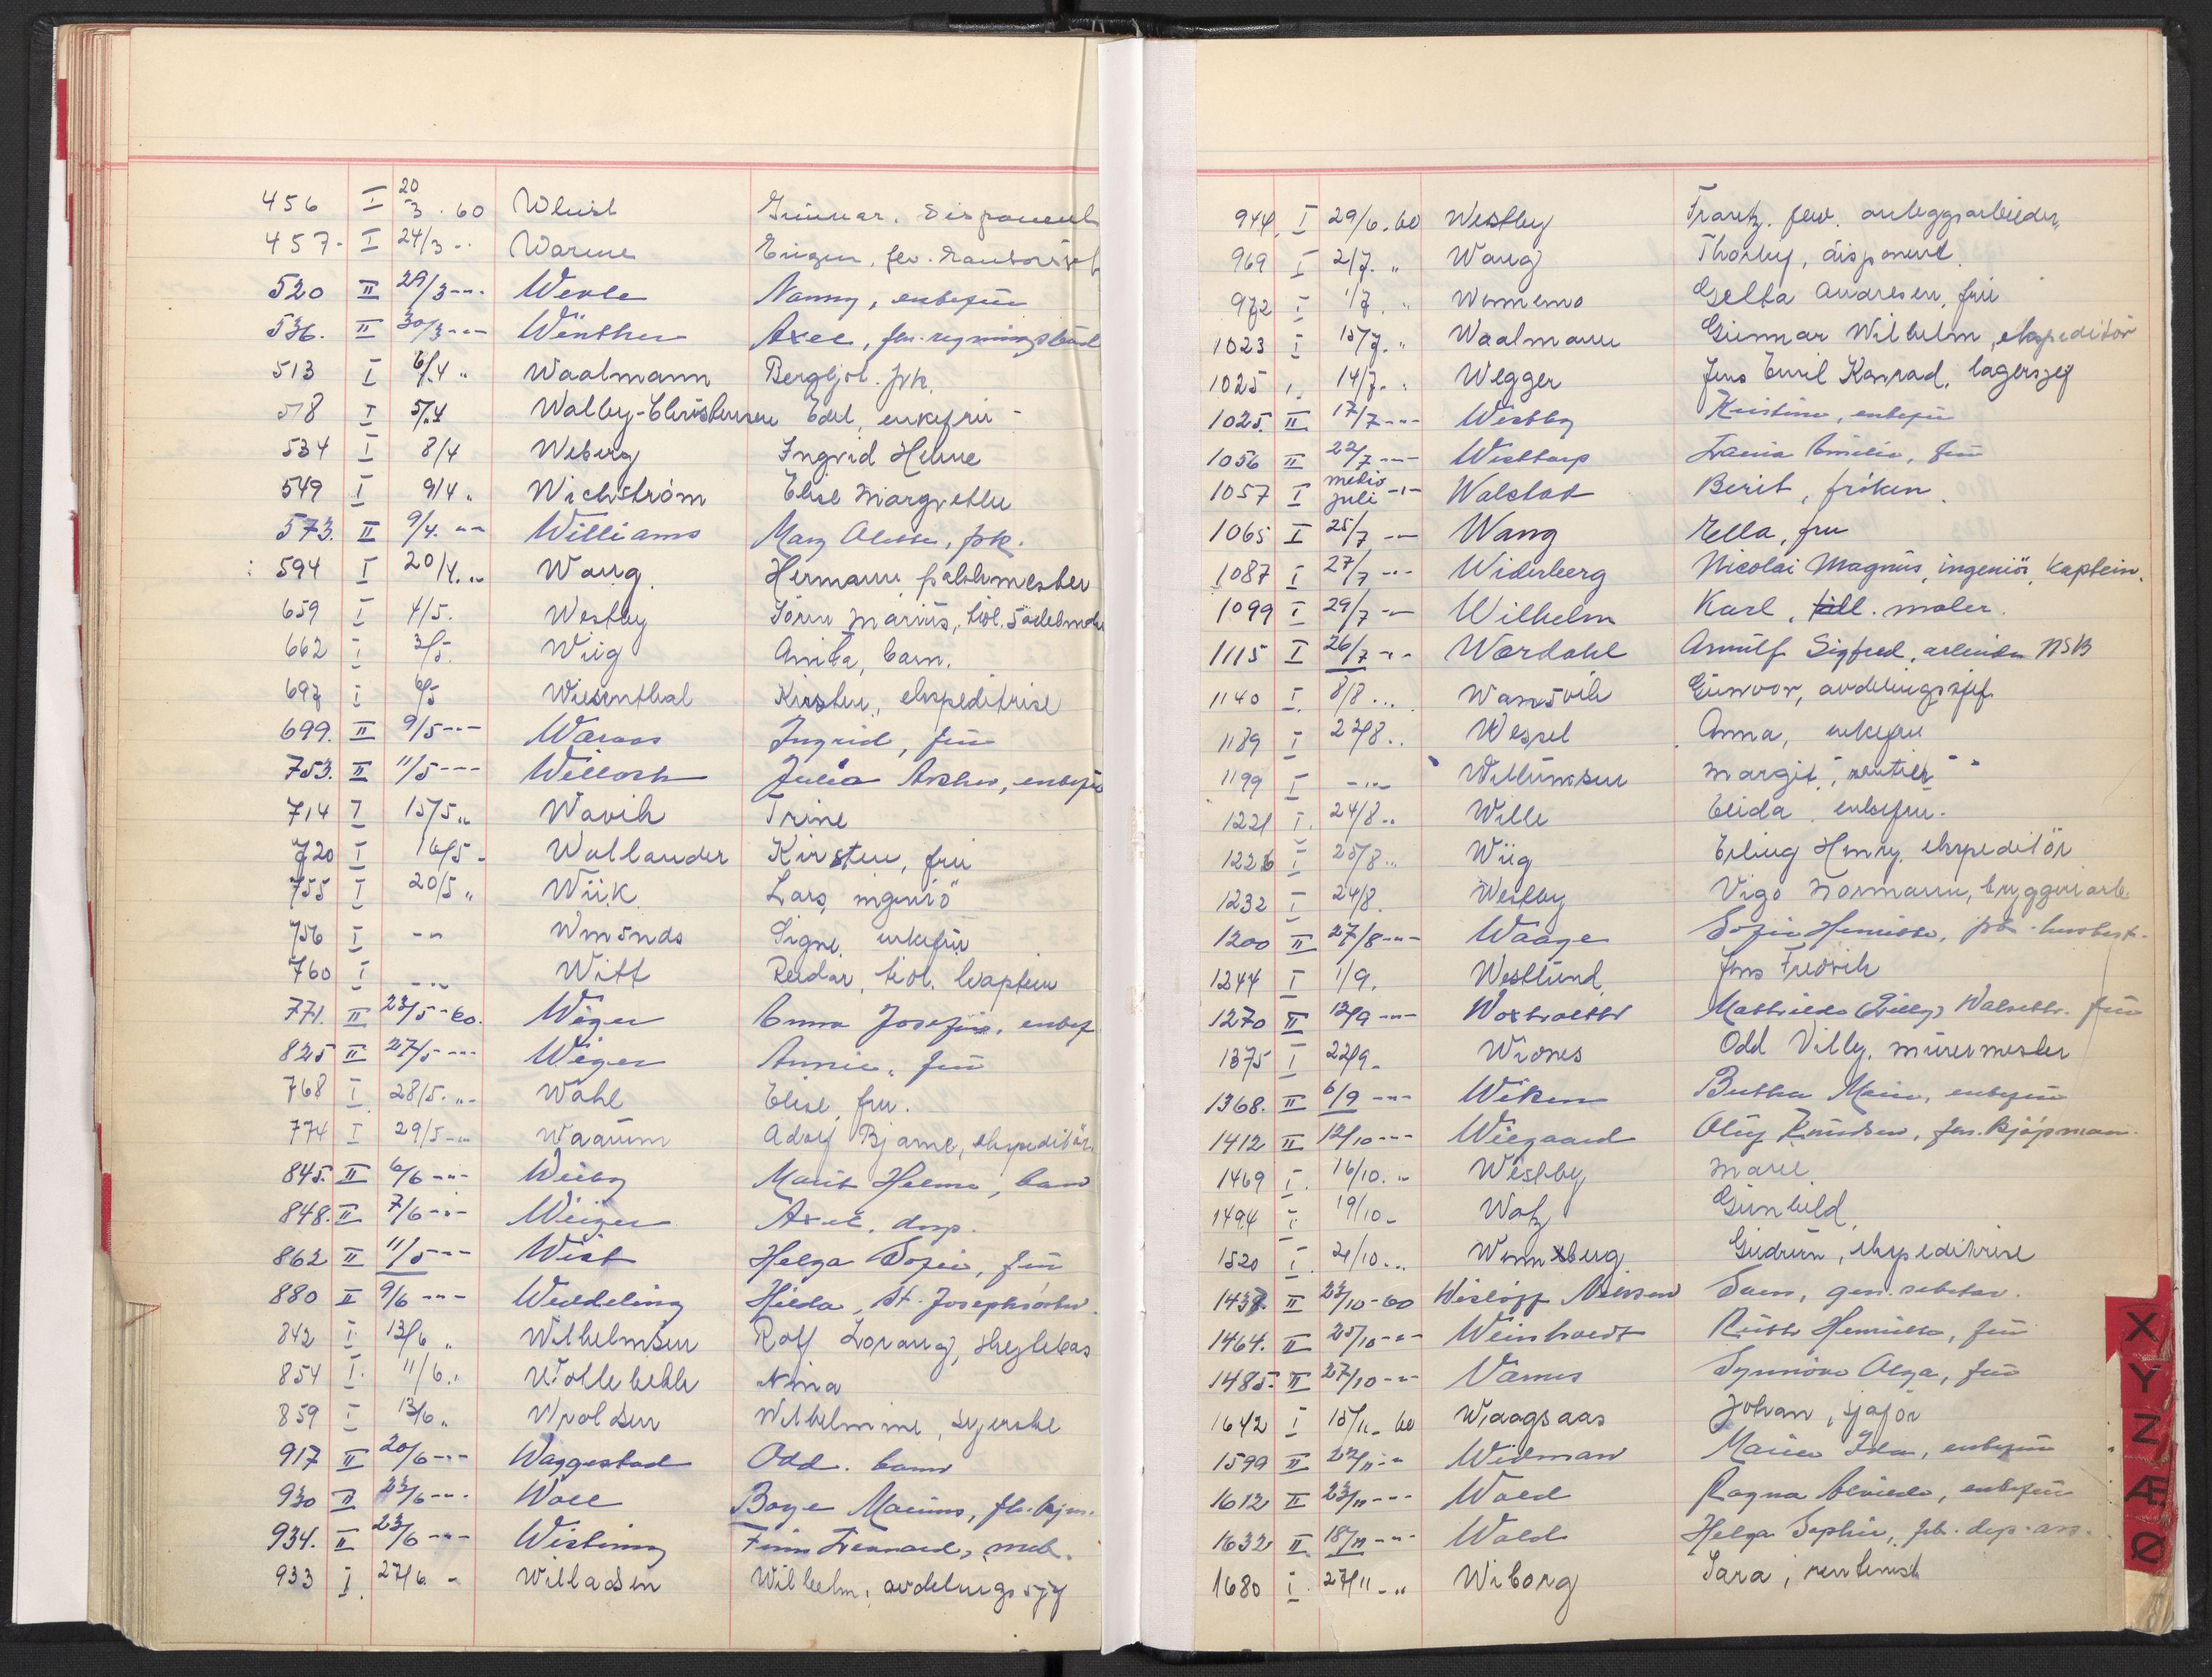 456 I 20/3.60 Gunnar. Disponent
457- I 24/3 -- Warme Eugen, fev.
520 II 29/3 --- Werle Nanny, enkefru
536. II 30/3 --- Winther Axel, fhv. regningsbud
513 I 6/4 " Waalmann Bergljot. frk.
518 I 5/4 Walby-Christensen Edel, enkefru -
534 I 8/4 Weberg Ingrid Helene
549 I 9/4 " Wichström Else Margrethe
573. II 9/4. -"- Williams Mary Alette, frk.
594 I 20/4. " Wang Hermann,
659 I 4/5. Westby Sören Marius, tidl.
662 I 3/5. Wiig Anita, barn.
697 I 6/5 Wiesenthal Kirsten, ekspeditrise
699. II 9/5 --- Waraas Ingrid, fru
753. II 11/5 --- Willoch Julia Archer, enkefru
714 I 15/5 " Wavik Trine
720 I 16/5 - Wallander Kirsten, fru
755 I 20/5 " Wiik Lars, ingeniö
756 I -"- Signe, enkefru
760 I -"- Witt Reidar, tidl. kaptein
771. II 23/5 - 60. Wiger Anna Josefine, enkef
825 II 27/5 --- Wiger Annie, fru
768 I 28/5. -"- Wahl Elise, fru.
774 I 29/5 -"- Waarum Adolf Bjarne, ekspeditör.
845. II 6/6 -"- Wiby Marit Helene, barn
848. II 7/6 -"- Weiger Axel, disp.
862 II 11/5 --- Wist Helga Sofie, fru
880 II 9/6 --- Weddeling Hilda, St. Josephsöster.
842 I 13/6 " Wilhelmsen Rolf Lorang,
854 I. 11/6. " Wollebekk Nina
859 I 13/6 " Wroldsen Wilhelmine, syerske
917 II 20/6 -"- Waggestad Odd. barn
930 II 23/6 -"- Woll Boye Marius, fhv. kjm.
934. II 23/6 -"- Wisting Finn Lennard, mek.
933 I. 27/6. - Willadsen Wilhelm, avdelingssjef
944 I 29/6. 60 Westby Frantz. fev. anleggsarbeider
969 I 2/7. " Wang Thorley, disponent.
972 I 1/7. " Wennemo Gelta Andresen, fru
1023 I 15/7. " Waalmann Gunnar Wilhelm, ekspeditör
1025 I. 14/7. " Wegger Jens Emil Konrad, lagersjef
1025. II 17/7 --- Westby Kristine, enkefru
1056 II 22/7 --- Westtorp Laura Emilie, fru
1057 I medio juli -"- Walstad Berit, fröken.
1065 I 25/7 -"- Wang Ella, fru
1087 I 27/7 --- Widerberg Nicolai Magnus, ingeniör, kaptein.
1099 I 29/7 -"- Wilhelm Karl, tidl. maler.
1115 I 26/7 -"- Wardahl Arnulf Sigfred, arbeider NSB
1140 I. 8/8 ... Wansvik Gunvor, avdelingssjef
1189 I 22/8 .. Wessel Anna, enkefru
1199 I -"- Willumsen Margit, rentier
1221 I. 24/8 .. Wille Elida, enkefru.
1226 I 25/8 ... Wiig Erling Henry, ekspeditör
1232 I 24/8. Westby Vigo Normann, bryggeriarb.
1200 II 27/8 -"- Waage Sofie Henriette, frk. husbest.
1244 I 1/9. Westlund Jens Fredrik
1270 II 12/9 -"- Woxholtt Mathilde (Lilly) fru
1375 I 22/9. Wiones Odd Villy, murermester
1368. II 6/9 -"- Wiken Bertha Marie, enkefru
1412 II 12/10 --- Wiegaard Oluf Knudsen, fhv. kjöpmann.
1469 I. 16/10. " Westby Marie
1494 I. 19/10 - Watz Gunhild
1520 I. 21/10 ... Gudrun, ekspeditrise
1437. II 23/10 - 60 Wisløff Nilssen Sven, gen. sekretær.
1464. II 25/10 -"- Weinholdt Ruth Henriette, fru
1485. II 27/10 -"- Varnes Synnöve Olga, fru
1642 I 15/11 - 60 Waagsaas Johan, sjaför
1599 II 22/11 -"- Widman Marie Ida, enkefru
1612 II 23/11 --- Wold Ragna Elvida, enkefru
1632 II 18/11 -"- Wold Helga Sophie, fhv. dep. ass.
1680 I. 27/11 - " Wiborg Sara, rentenist
X
Y
Z
Æ
Ø